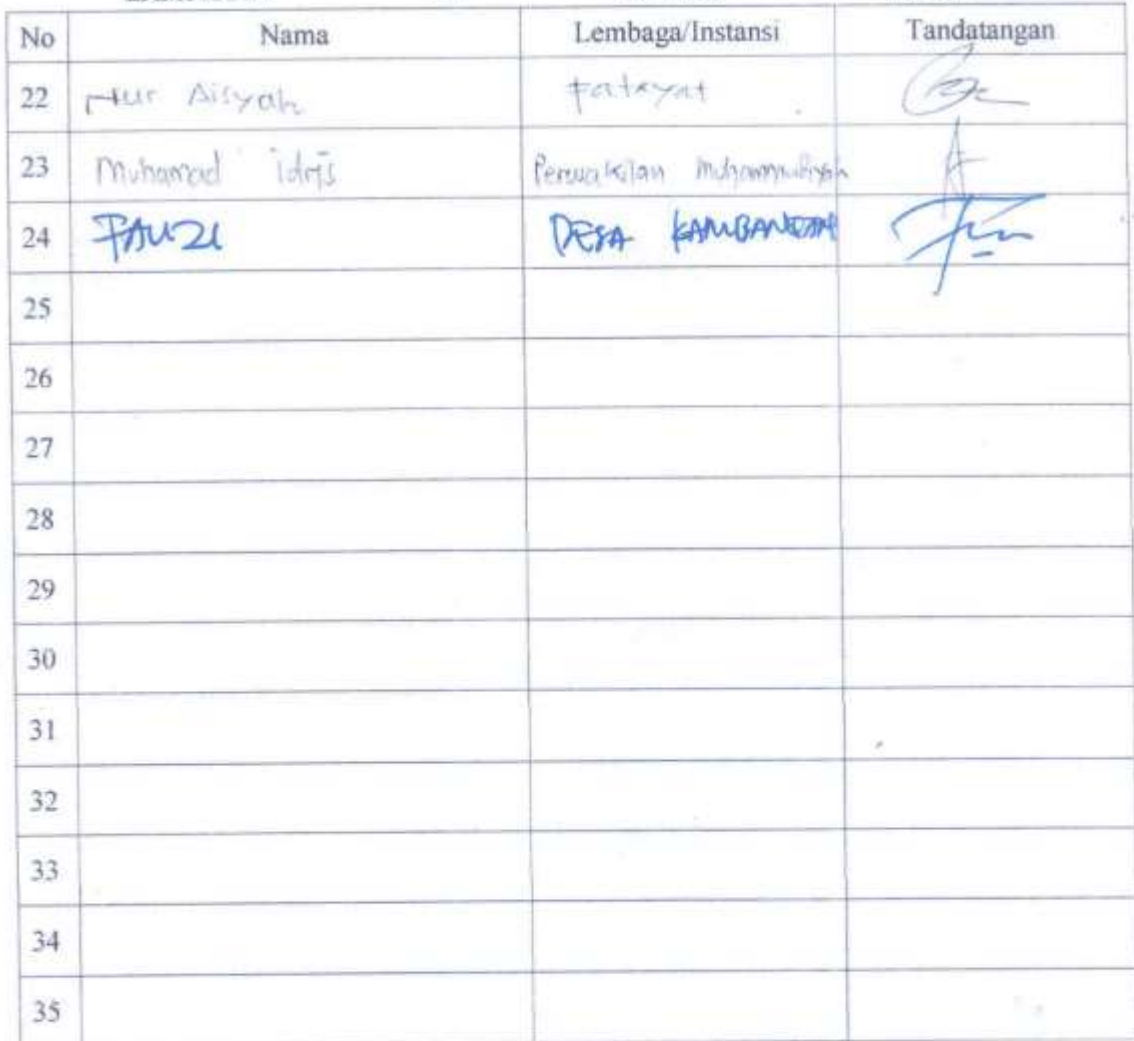 No Nama Lembaga/Instansi Tandatangan
22 Nur Aisyah Fatayat
23 Muhamad idris Perwakilan
24 FAUZI DESA
25
26
27
28
29
30
31
32
33
34
35